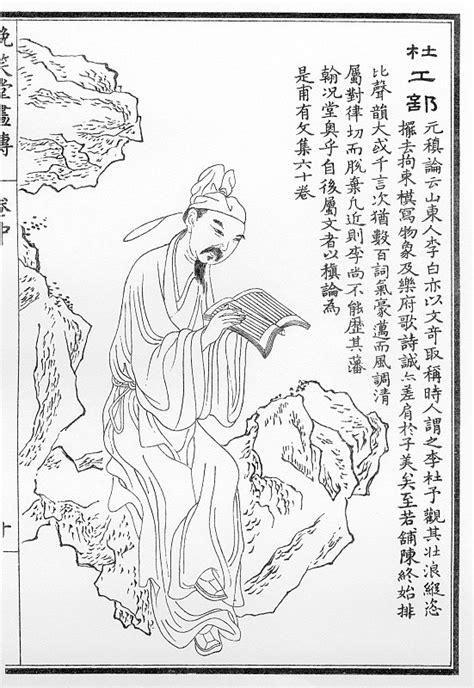 杜工部
元稹論云山東人李白亦以文竒取稱時人謂之李杜予觀其壯浪縱恣
擺去拘束模冩物象及樂府歌詩誠亦差肩於子美矣至若舖陳終始排
比聲韻大或千言次猶數百詞氣豪邁而風調清
屬對律切而脫棄凡近則李尚不能歷其藩
翰况堂奧乎自後屬文者以稹論為
是甫有文集六十卷
晚笑堂畫傳
卷中
十